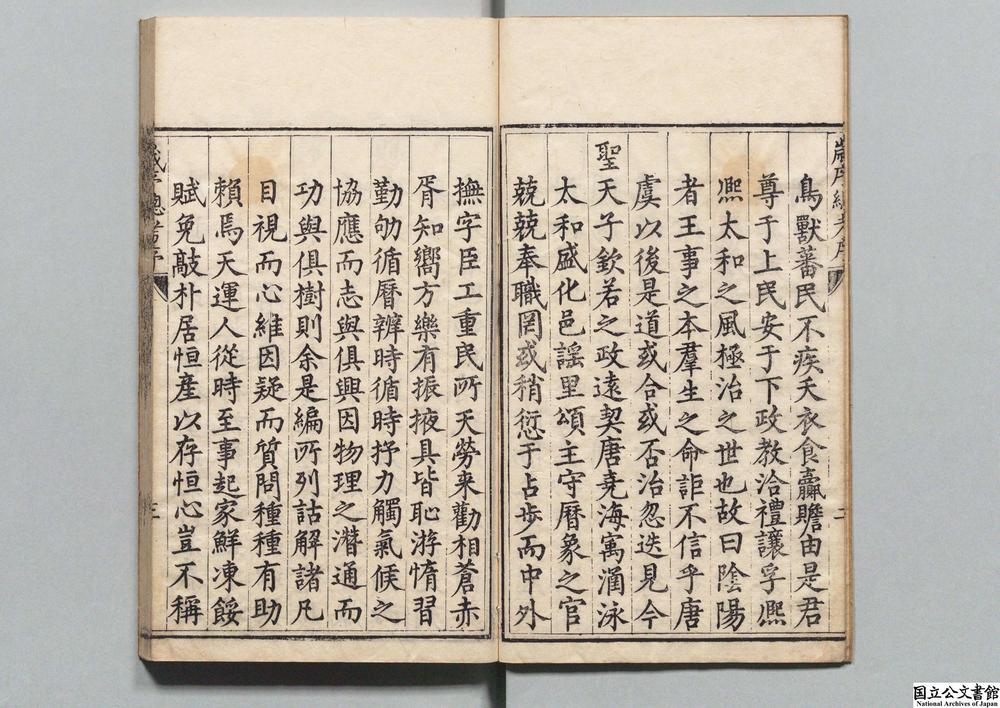 鳥獸蕃民不疾夭衣食贏贍由是君
尊于上民安于下政教洽禮讓孚熈
熈太和之風極治之世也故曰陰陽
者王事之本羣生之命詎不信乎唐
虞以後是道或合或否治忽迭見今
聖天子欽若之政遠契唐堯海寓涵泳
太和盛化邑謡里頌主守曆象之官
兢兢奉職罔或稍愆于占步而中外
二
撫字臣工重民所天勞来勸相蒼赤
胥知嚮方樂有振掖具皆恥游惰習
勤劬循曆辨時循時抒力觸氣候之
協應而志與俱興因物理之潛通而
功與俱樹則余是編所列詁解諸凡
目視而心維因疑而質問種種有助
賴焉天運人從時至事起家鮮凍餒
賦免敲朴居恒産以存恒心豈不稱
三
国立公文書館
National Archives of Japan